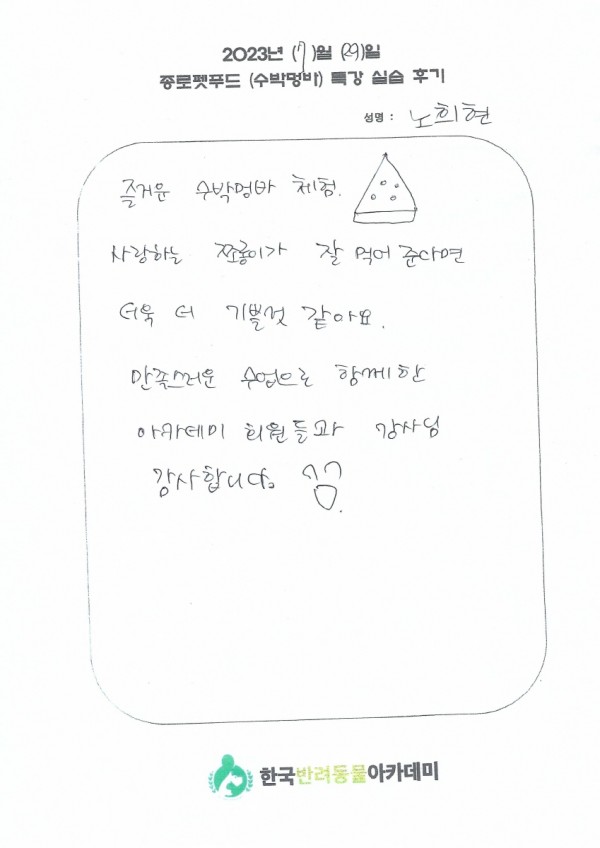 2023년 (7)월 (29)일
종로펫푸드 (수박멍바) 특강 실습 후기
성명 : 노희현
즐거운 수박멍바 체험.
사랑하는 쪼롱이가 잘 먹어 준다면
더욱 더 기쁠것 같아요.
만족스러운 수업으로 함께한
아카데미 회원들과 강사님
감사합니다.
한국반려동물아카데미